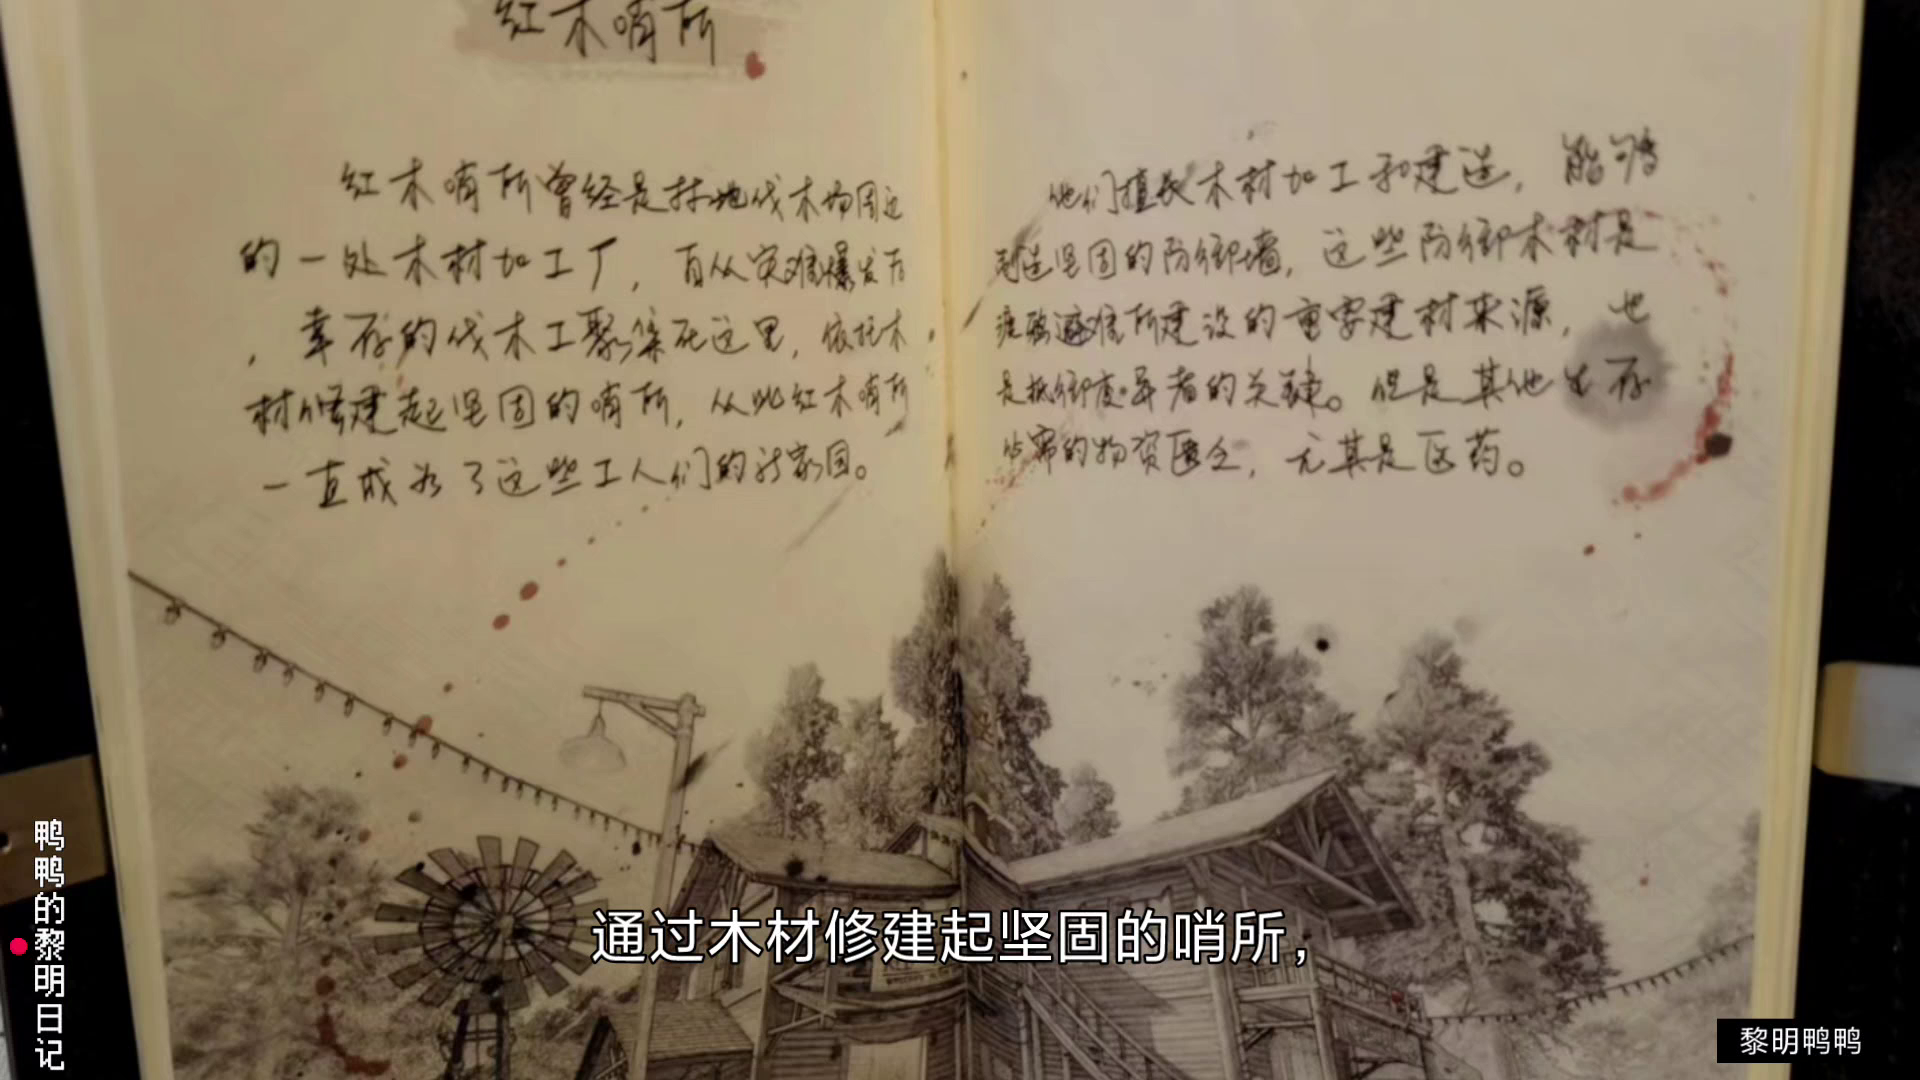 红木哨所
红木哨所曾经是林地伐木场周边
的一处木材加工厂，自从灾难爆发后
，幸存的伐木工聚集在这里，依托木
材修建起坚固的哨所，从此红木哨所
一直成为了这些工人们的新家园。
他们擅长木材加工和建造，能够
制造坚固的防御墙，这些防御木材是
避难所建设的重要建材来源，也
是抵御变异者的关键。但是其他生存
必需的物资匮乏，尤其是医药。
通过木材修建起坚固的哨所，
鸭鸭的黎明日记
黎明鸭鸭